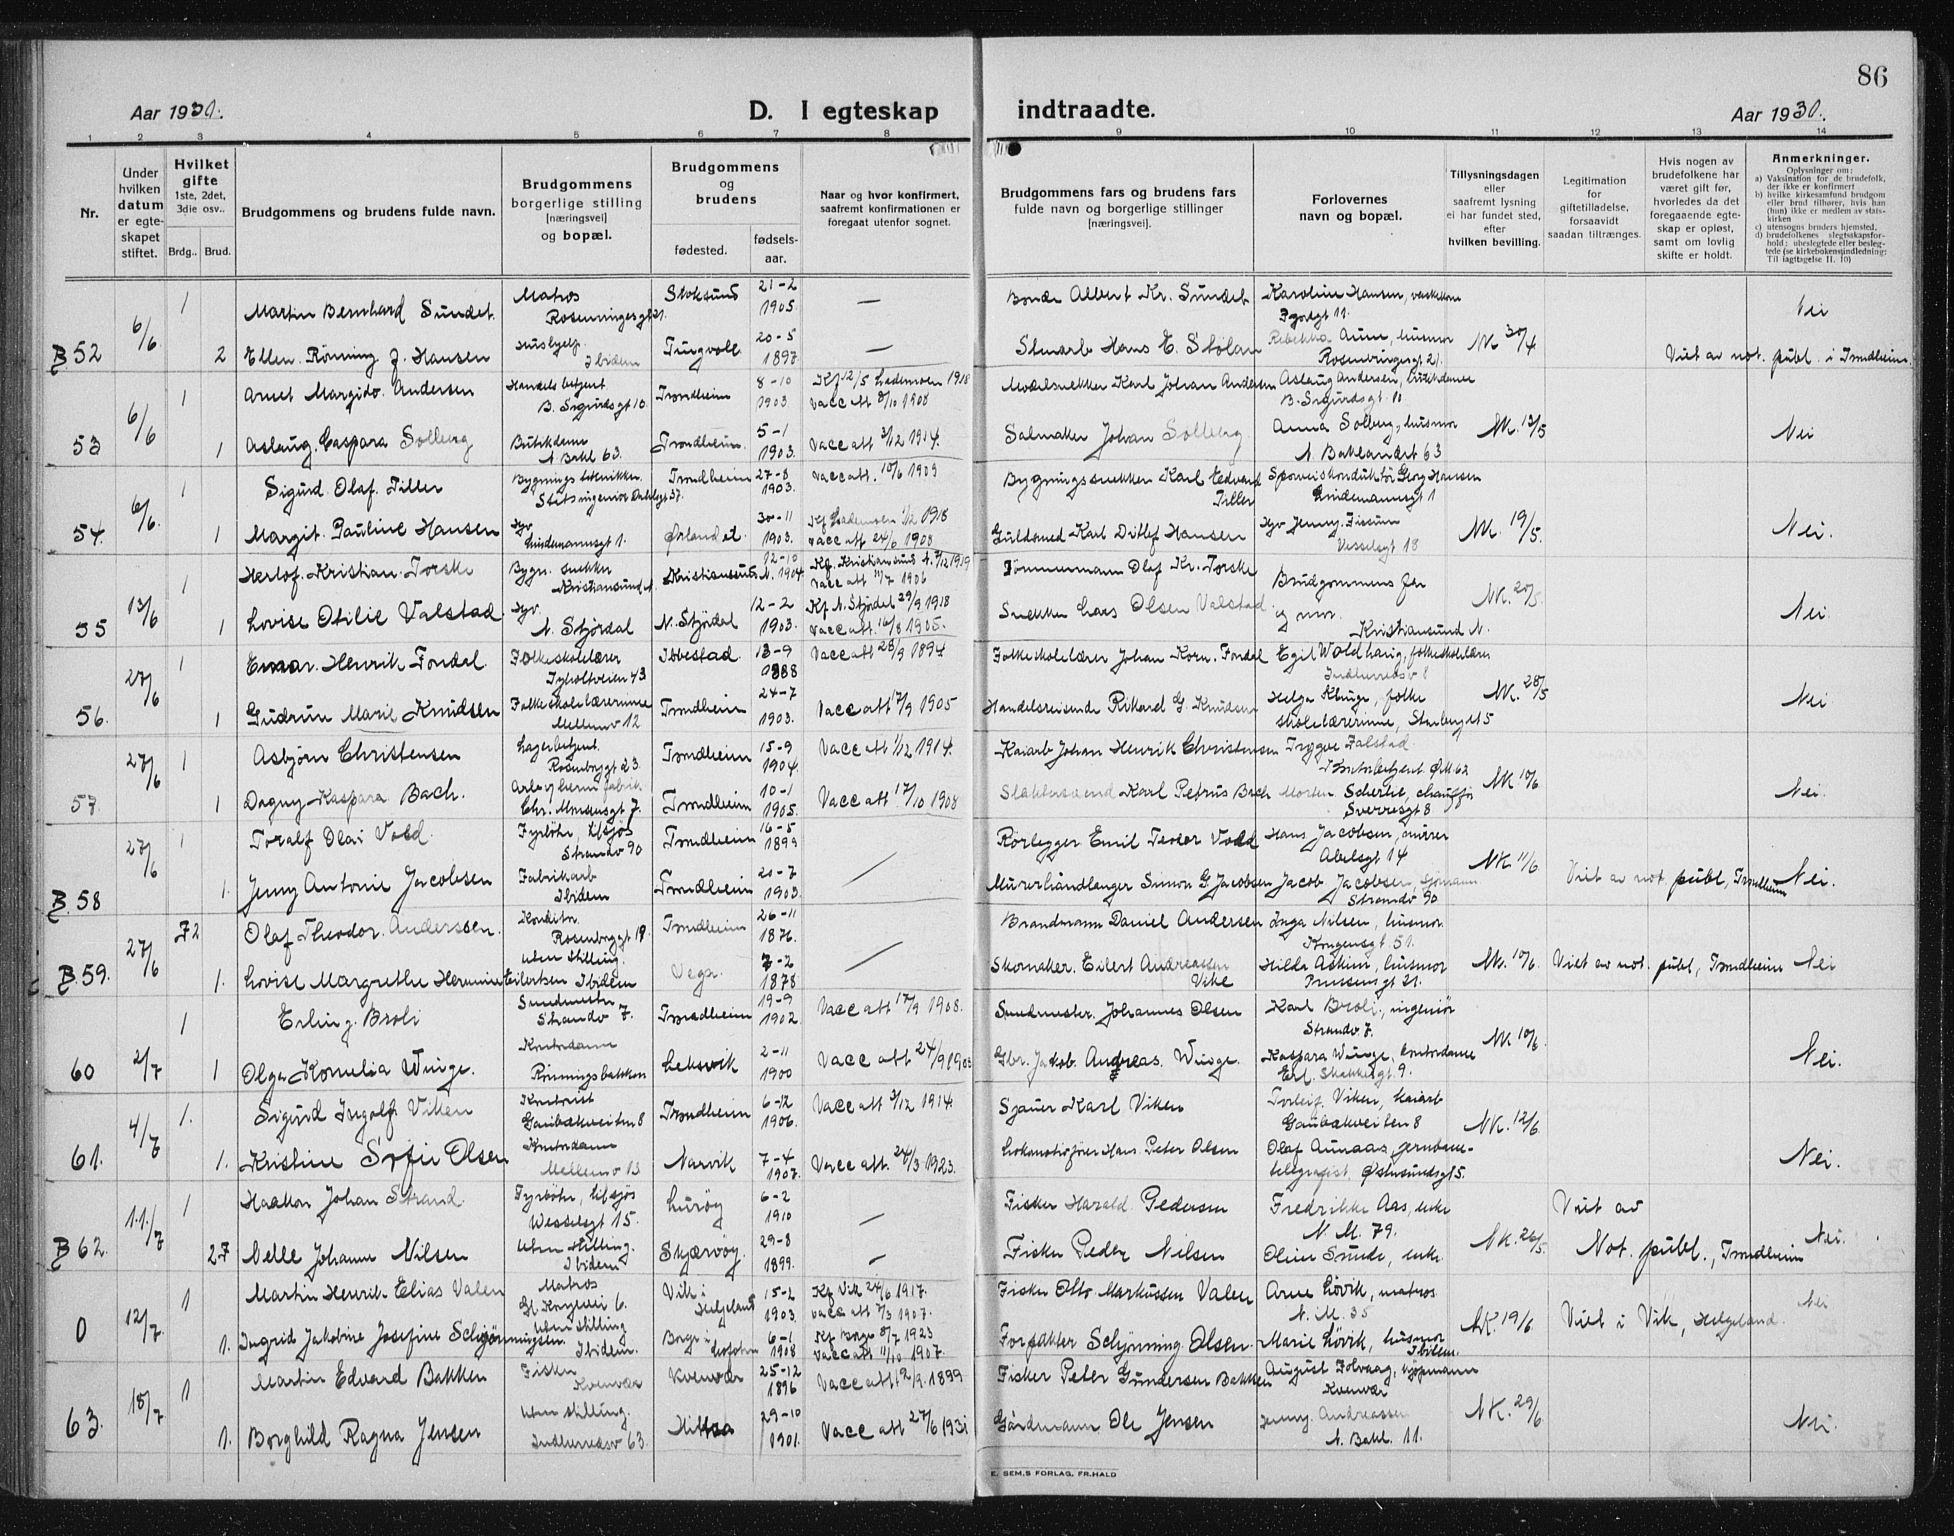 86
Aar 1930.
D. I egteskap indtraadte.
Aar 1930.
1 2 3 4 5 6 7 8 9 10 11 12 13 14
Nr.
Under hvilken datum er egteskapet stiftet.
Hvilket gifte 1ste, 2det, 3die osv..
Brdg.. Brud.
Brudgommens og brudens fulde navn.
Brudgommens borgerlige stilling [næringsvei] og bopæl.
Brudgommens og brudens
fødested.
fødsels-aar.
Naar og hvor konfirmert, saafremt konfirmationen er foregaat utenfor sognet.
Brudgommens fars og brudens fars fulde navn og borgerlige stillinger [næringsvei].
Forlovernes navn og bopæl.
Tillysningsdagen eller saafremt lysning ei har fundet sted, efter hvilken bevilling.
Legitimation for giftetilladelse, forsaavidt saadan tiltrænges.
Hvis nogen av brudefolkene har været gift før, hvorledes da det foregaaende egteskap er opløst, samt om lovlig skifte er holdt.
Anmerkninger.
Oplysninger om:
a) Vaksination for de brudefolk, der ikke er konfirmert
b) hvilke kirkesamfund brudgom eller brud tilhører, hvis han (hun) ikke er medlem av statskirken
c) utensogns bruders hjemsted.
d) brudefolkenes slegtsskapsforhold: ubeslegtede eller beslegtede (se kirkebokens indledning: Til iagttagelse II. 10)
B 52 6/6 1 Martin Bernhard Sundet. Matros Stoksund 21-2 1905. — Bonde Albert Kr. Sundet Karoline Hansen, Nei
2 Ellen Rønning f. Hansen Hushjelp. Ibidem Tingvoll 20-5 1897. — Hans E. Stølan Aune, husmor Rosenborgsgt 21. NK. 30/4 Viet av not. publ. i Trondheim.
53 6/6 1 Arnt Margido. Andersen Handelsbetjent B. Sigurdsgt 10 Trondheim 8-10 1903. Kf 12/5 Lademoen 1918 Vacc att 9/10 1908 Møbelsnekker Karl Johan Andersen Aslaug Andersen, butikdame B. Sigurdsgt. 10
1 Aslaug. Caspara Solberg Butikdame N. Bakl 63. Trondheim. 5-1 1903. Vacc att 3/12 1914. Salmaker Johan Solberg Anna Solberg, husmor N. Baklandet 63 NK. 13/5 Nei
54. 6/6. 1 Sigurd Olaf Tiller Bygningstekniker. Trondheim 27-8 1903. Vacc att. 15/6 1909 Bygningssnekker Karl Edvard Tiller Sporveiskonduktør Georg Hansen Lindemannsgt 1
1 Margit. Pauline Hansen Hgv Lindemannsgt 1. Ørlandet 30-11 1903. Kf Lademoen 1/12 1918 vacc att 24/6 1908 Guldsmed Karl Ditlef Hansen Hgv Jenny. Fissum Wesselsgt 18 NK. 19/5. Nei.
55 13/6 1 Herlof. Kristian. Torske Bygn. snekker Kristiansund N. Kristiansund N. 12-10 1904. Vacc att 11/7 1906 Tømmermann Olaf Kr. Torske Brudgommens far og mor. Kristiansund N.
1 Lovise Otilie Valstad Hgv. N. Stjørdal N. Stjørdal 12-2 1903. Kf N. Stjørdal 29/9 1918 Vacc att. 16/8 1905. Snekker Lars Olsen Valstad. NK. 20/5. Nei
56. 27/6 1 Einar. Henrik Fondal Folkeskolelærer Tyholtveien 43 Ibbestad. 13-9 1888 Vacc att 28/9 1894. Folkeskolelærer Johan Korn. Fondal Egil Woldhaug, folkeskolelærer Indherredsv 8
1 Gudrun Marie Knudsen Folkeskolelærerinne Mellomv 12 Trondheim 24-7 1903. Vacc att 17/9 1905 Handelsreisende Rikard G. Knudsen Helga Kluge, folkeskolelærerinne, NK. 28/5 Nei
57. 27/6 1 Asbjørn Christensen Lagerbetjent. Rosenborgt 23. Trondheim 15-9 1904. Vacc att 1/12 1914. Kaiarb Johan Henrik Christensen Trygve Falstad.
1 Dagny Kaspara Bach. Trondheim 10-1 1905. Vacc att. 17/10 1908 Karl Petrus Bach Morten Scherke, chauffør Sverresgt 8 NK 10/6 Nei.
B. 58 27/6 1 Toralf Olai Vold. Fyrbøter, tilsjøs Strandv 90 Trondheim 16-5 1899 — Rørlegger Emil Teoder Vold Hans Jacobsen, murer Abelsgt 14
1. Jenny Antonie Jacobsen Fabrikarb Ibidem Trondheim 20-7 1903. Murerhåndlanger Simon G. Jacobsen Jacob Jacobsen, sjømann Strandv 90 NK. 11/6. Viet av not publ, Trondheim Nei.
B. 59. 27/6 Olaf Theodor. Anderssen. Konditor. Rosenborgt 19. Trondheim 26-11 1876. — Brandmann Daniel Andersen Inga Nilsen, husmor. Kongensgt 51.
1. Lovise Margrethe Hermine Eilertsen Uten stilling. Ibidem Vega. 7-2 1878 Skomaker. Eilert Andreassen Vike Hilda Askim, husmor Prinsensgt 21. NK. 10/6. Viet av not. publ, Trondheim Nei
60 2/7 1 Erling. Broli Strandv 7. Trondheim 19-9 1902. Vacc att 17/9 1908. Smedmester. Johannes Olsen Karl Broli, ingeniør Strandv 7.
1 Olga Kornelia Winge. Kontordame Rønningsbakken Leksvik 2-11 1900 Vacc att 24/9 1903 Gbr. Jakob. Andreas. Winge. Kaspara Winge, kontordame Erl. Skakkesgt 9. NK 10/6. Nei.
61. 4/7 1. Sigurd Ingolf Viken Kontorist Gaubækveiten 8 Trondheim 6-12 1906. Vacc att 3/12 1914. Sjauer Karl Viken Torleif Viken, kaiarb Gaubækveiten 8
1. Kristine Sofie Olsen Kontordame Mellomv 13 Narvik 7-4 1907. Vacc att. 24/3 1923. Lokomotivfører Hans Peter Olsen Olaf Aunaas, jernbanetelegrafist, Østersundsgt 5. NK. 12/6. Nei.
B 62. 11/7 1 Haakon Johan Strand. Fyrbøter, tilsjøs Wesselsgt 15. Lurøy 6-2 1910 — Fisker Harald Pedersen Fredrikke Aas, enke N. M. 79. Viet av
Nelle Johanne Nilsen Uten stilling. Ibidem Skjærvøy. 29-8 1899. — Fisker Peder Nilsen Oline Sunde, enke. NK. 26/5. Not. publ., Trondheim Nei.
0 12/7. 1 Martin Henrik Elias Valen Matros Gl. Kongevei 6. Vik i Helgeland 15-2 1903. Kf Vik 24/6 1917. vacc att 7/3 1907. Fisker Otto Markussen Valen Arne Løvik, matros N. M. 35 Nei
1. Ingrid Jakobine Josefine Schjønningsen. Uten stilling Ibidem. Borge i Lofoten 6-1 1908 Kf Borge 8/7 1923 Vacc att 11/10 1907. Schjønning Olsen. Marie Løvik, husmor Ibidem. NK. 19/6. Viet i Vik, Helgeland.
63. 18/7 1 Martin Edvard Bakken Fisker Kvenvær Kvenvær 25-12 1896 Vacc att 2/9. 1899 Fisker Peter Gundersen Bakken August Folvaag, kjøpmann Kvenvær
1. Borghild Ragna Jensen Uten stilling. Indherredsv 63. Hitra 29-10 1901. Vacc att 27/6 1931 Gårdmann Ole Jensen Jenny. Andreassen N. Bakl. 11. NK. 29/6. Nei.
E. SEM,S FORLAG, FR.HALD